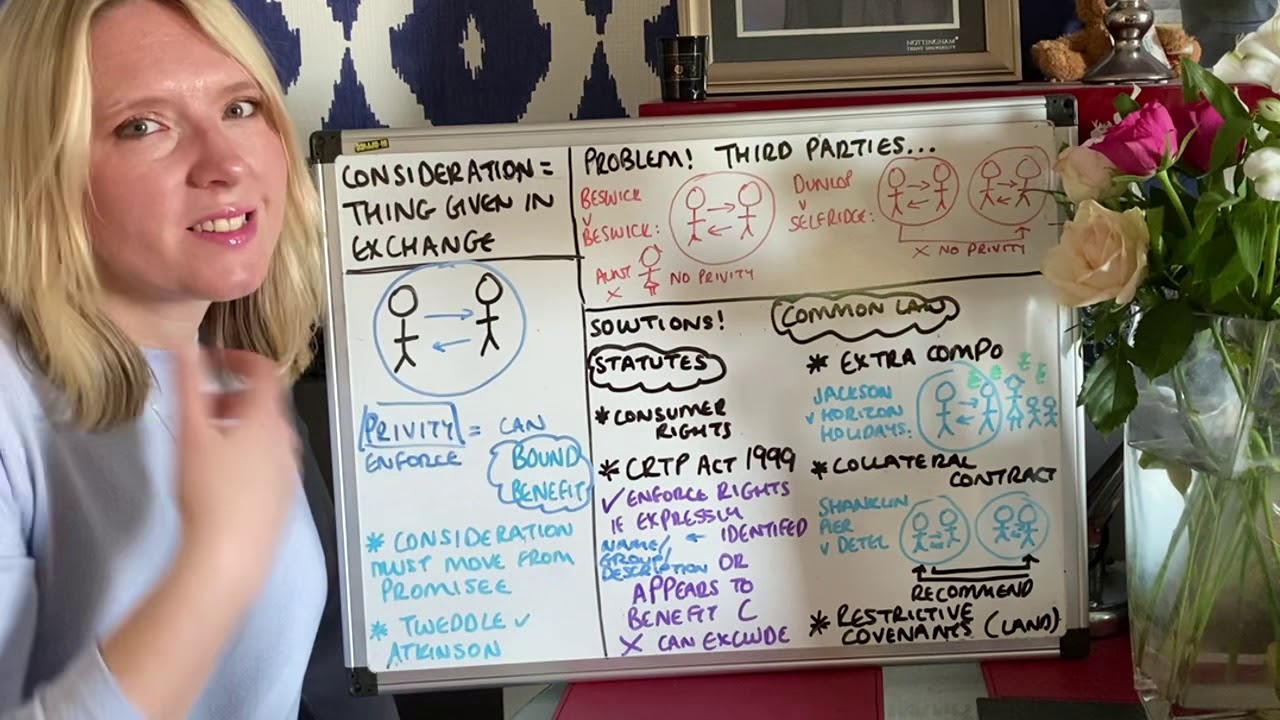 CONSIDERATION =
THING GIVEN IN
EXCHANGE
PRIVITY = CAN
ENFORCE
BOUND
BENEFIT
* CONSIDERATION
MUST MOVE FROM
PROMISEE
* TWEDDLE v
ATKINSON
PROBLEM! THIRD PARTIES...
BESWICK
v
BESWICK:
AUNT
X
NO PRIVITY
DUNLOP
v
SELFRIDGE:
X NO PRIVITY
SOLUTIONS!
STATUTES
* CONSUMER
RIGHTS
* CRTP ACT 1999
✓ ENFORCE RIGHTS
IF EXPRESSLY
NAME/ ← IDENTIFED
GROUP/
DESCRIPTION OR
APPEARS TO
BENEFIT C
X CAN EXCLUDE
COMMON LAW
* EXTRA COMPO
£ £ £ £
JACKSON
v HORIZON
HOLIDAYS:
* COLLATERAL
CONTRACT
SHANKLIN
PIER
v DETEL
RECOMMEND
* RESTRICTIVE
COVENANTS (LAND)